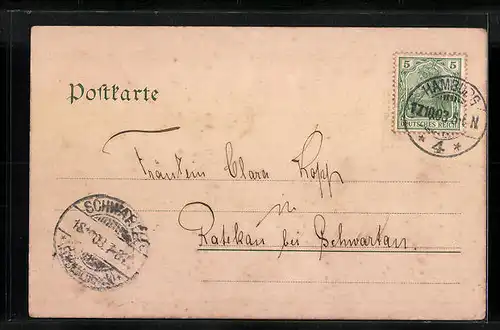 Postkarte
5 5
DEUTSCHES REICH
HAMBURG
17.10.03.5-6 N
* 4 *
Fräulein Clara Kopp
in
Ratekau bei Schwartau.
SCHWARTAU